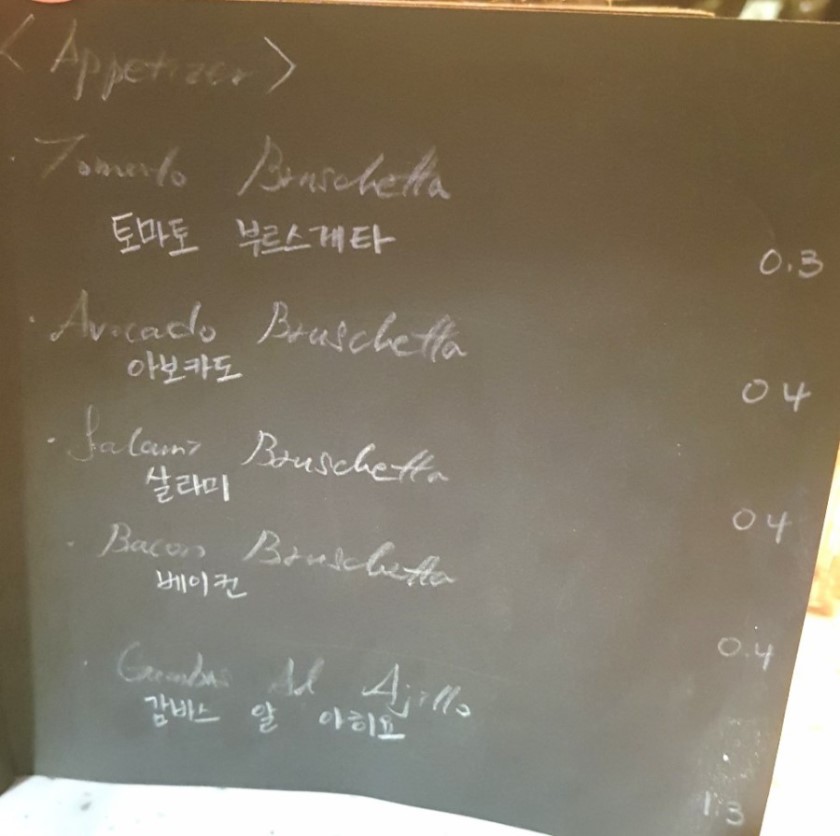 < Appetizer >
· Tomato Bruschetta
토마토 부르스게타
0.3
· Avocado Bruschetta
아보카도
04
· Salami Bruschetta
살라미
04
· Bacon Bruschetta
베이컨
0.4
· Gambas Al Ajillo
감바스 알 아히요
1.3